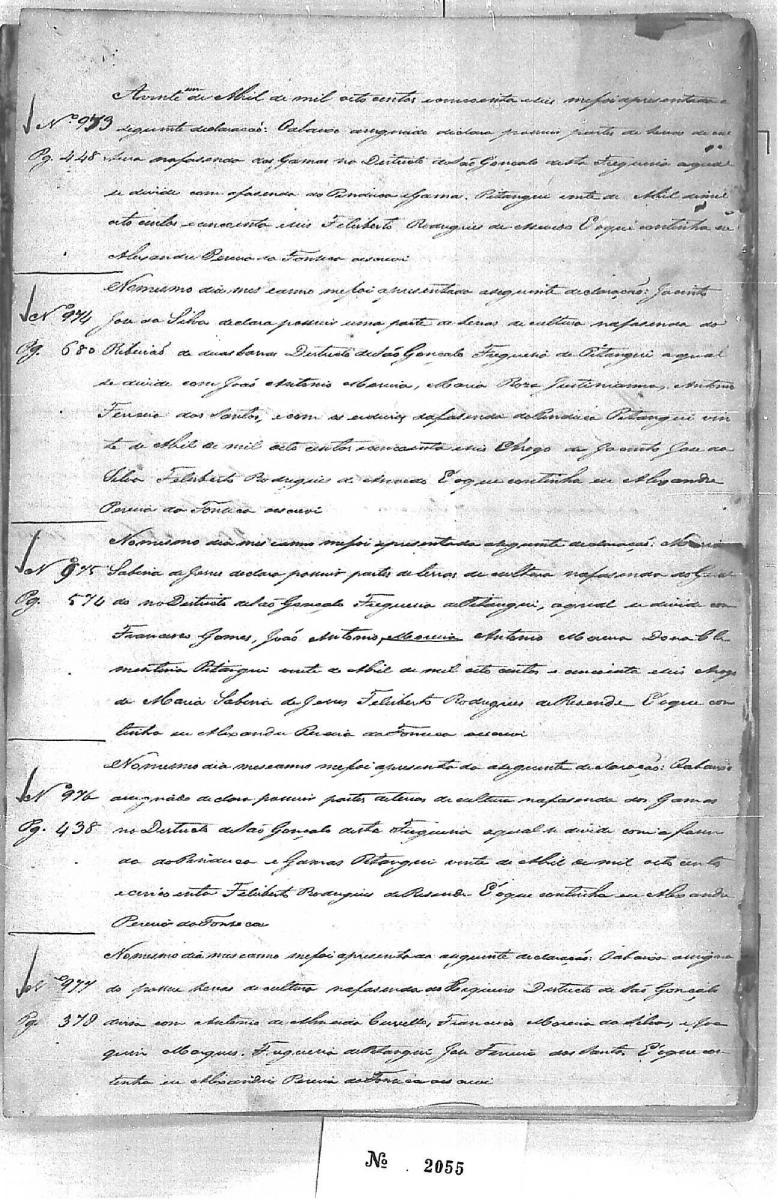 A vinte um de Abril de mil oito centos e cincoenta e seis me foi apresentada a
Nº 973 seguinte declaração: O abaixo assignado declara possuir partes de terras de cul
Pg. 448 tura na fasenda dos Gamas no Districto de São Gonçalo desta Freguesia a qual
se divide com a fasenda do Pindica e Gama. Pitangui vinte de Abril de mil
oito centos e cincoenta e seis Feliberto Rodrigues de E o que continha eu
Alexandre Pereira da Fonseca escrevi
No mesmo dia mes e anno me foi apresentada a seguinte declaração: Jacinto
Nº 974 Jose da Silva declara possuir uma parte de terras de cultura na fasenda do
Pg. 680 Ribeirão de duas barras Districto de São Gonçalo Freguesia de Pitangui a qual
se divide com João Antonio Moreira, Maria Roza Justinianna, Antonio
Ferreira dos Santos, e com os da fasenda do Pitangui vin
te de Abril de mil oito centos e cincoenta e seis A rogo de Jacinto Jose da
Silva Feliberto Rodrigues de E o que continha eu Alexandre
Pereira da Fonseca escrevi
No mesmo dia mes e anno me foi apresentada a seguinte declaração: Maria
Nº 975 Sabina de Jesus declara possuir partes de terras de cultura na fasenda do
Pg. 574 do no Districto de São Gonçalo Freguesia de Pitangui, a qual se divide com
Francisco Gomes, João Antonio, Moreira Antonio Moreira Dona Cle
mentina Pitangui vinte de Abril de mil oito centos e cincoenta e seis A rogo
de Maria Sabina de Jesus Feliberto Rodrigues de Resende E o que con
tinha eu Alexandre Pereira da Fonseca escrevi
No mesmo dia mes e anno me foi apresentada a seguinte declaração: O abaixo
Nº 976 assignado declara possuir partes de terras de cultura na fasenda dos Gamas
Pg. 438 no Districto de São Gonçalo desta Freguesia a qual se divide com a fasen
da do e Gamas Pitangui vinte de Abril de mil oito centos
e cincoenta Feliberto Rodrigues de Resende E o que continha eu Alexandre
Pereira da Fonseca
No mesmo dia mes e anno me foi apresentada a seguinte declaração: O abaixo assigna
Nº 977 do possue terras de cultura na fasenda do Districto de São Gonçalo
Pg. 378 divisa com Antonio de Almeida Francisco Moreira da Silva, e Joa
quim Marques. Freguesia de Pitangui Jose Ferreira dos Santos. E o que con
tinha eu Alexandre Pereira da Fonseca escrevi
Nº 2055